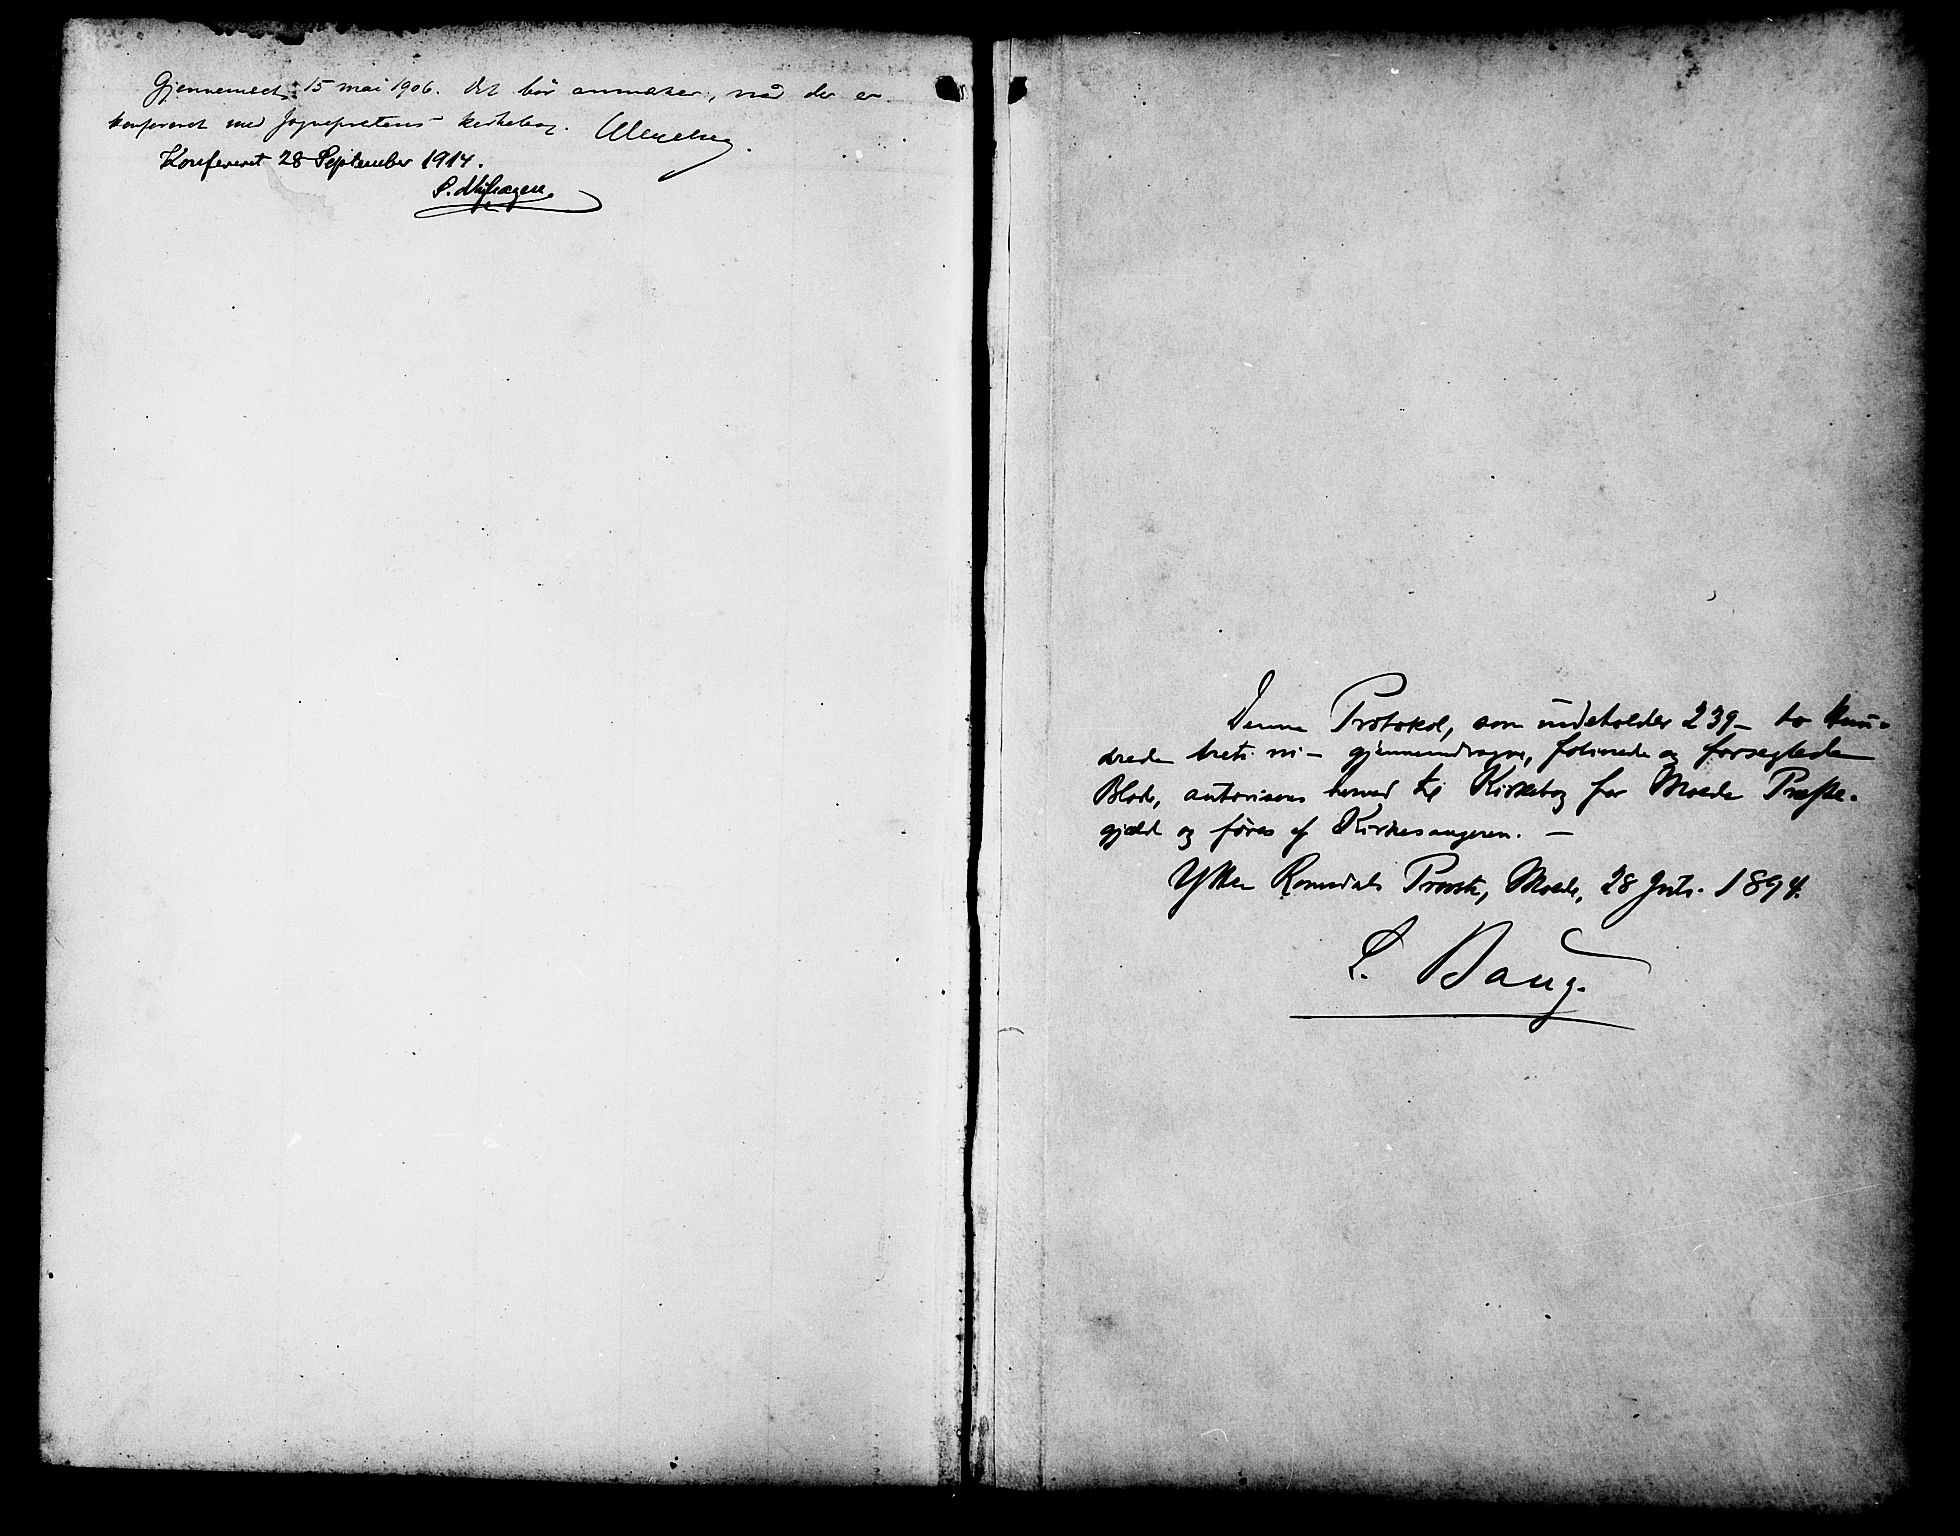 Gjennemset 15 mai 1906. Det bør anmærkes, naar der er
konfereret med sogneprestens kirkebog.
Konfereret 28 September 1914.
Denne Protokol, som indeholder 239 – to hun-
drede treti ni – gjennemdragne, folierede og forseglede
Blade, autoriseres herved til Kirkebog for Molde Præste-
gjæld og føres af Kirkesangeren. –
Ytter Romsdals Provsti, Molde, 28 Juli 1894.
L. Daug.